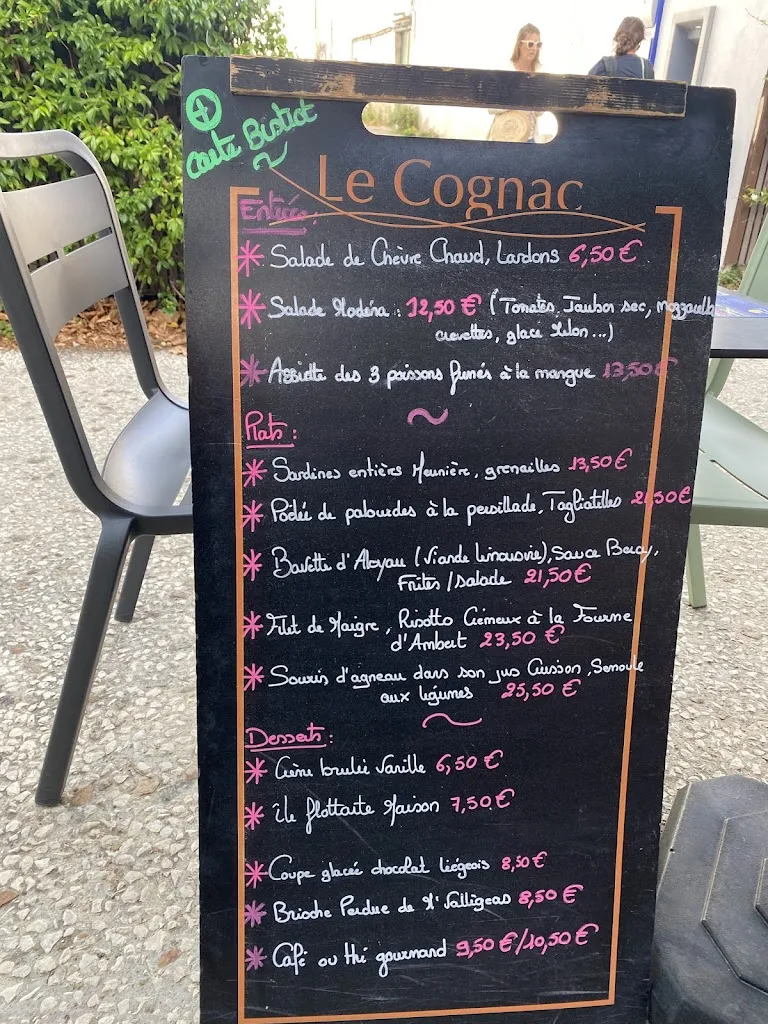 + Carte Bistrot
Le Cognac
Entrées :
* Salade de Chèvre Chaud, Lardons 6,50 €
* Salade Modéna : 12,50 € (Tomates, Jambon sec, mozzarella
crevettes, glace Melon ...)
* Assiette des 3 poissons fumés à la mangue 13,50 €
~
Plats :
* Sardines entières Meunière, grenailles 13,50 €
* Poêlée de palourdes à la persillade, Tagliatelles 21,50 €
* Bavette d'Aloyau (Viande Limousine), Sauce Bercy,
Frites / salade 21,50 €
* Filet de Maigre, Risotto Crémeux à la Fourme
d'Ambert 23,50 €
* Souris d'agneau dans son jus Cuisson, Semoule
aux légumes 25,50 €
~
Desserts :
* Crème brulée Vanille 6,50 €
* île flottante Maison 7,50 €
* Coupe glacée chocolat liégeois 8,50 €
* Brioche Perdue de M' 8,50 €
* Café ou thé gourmand 9,50 €/10,50 €